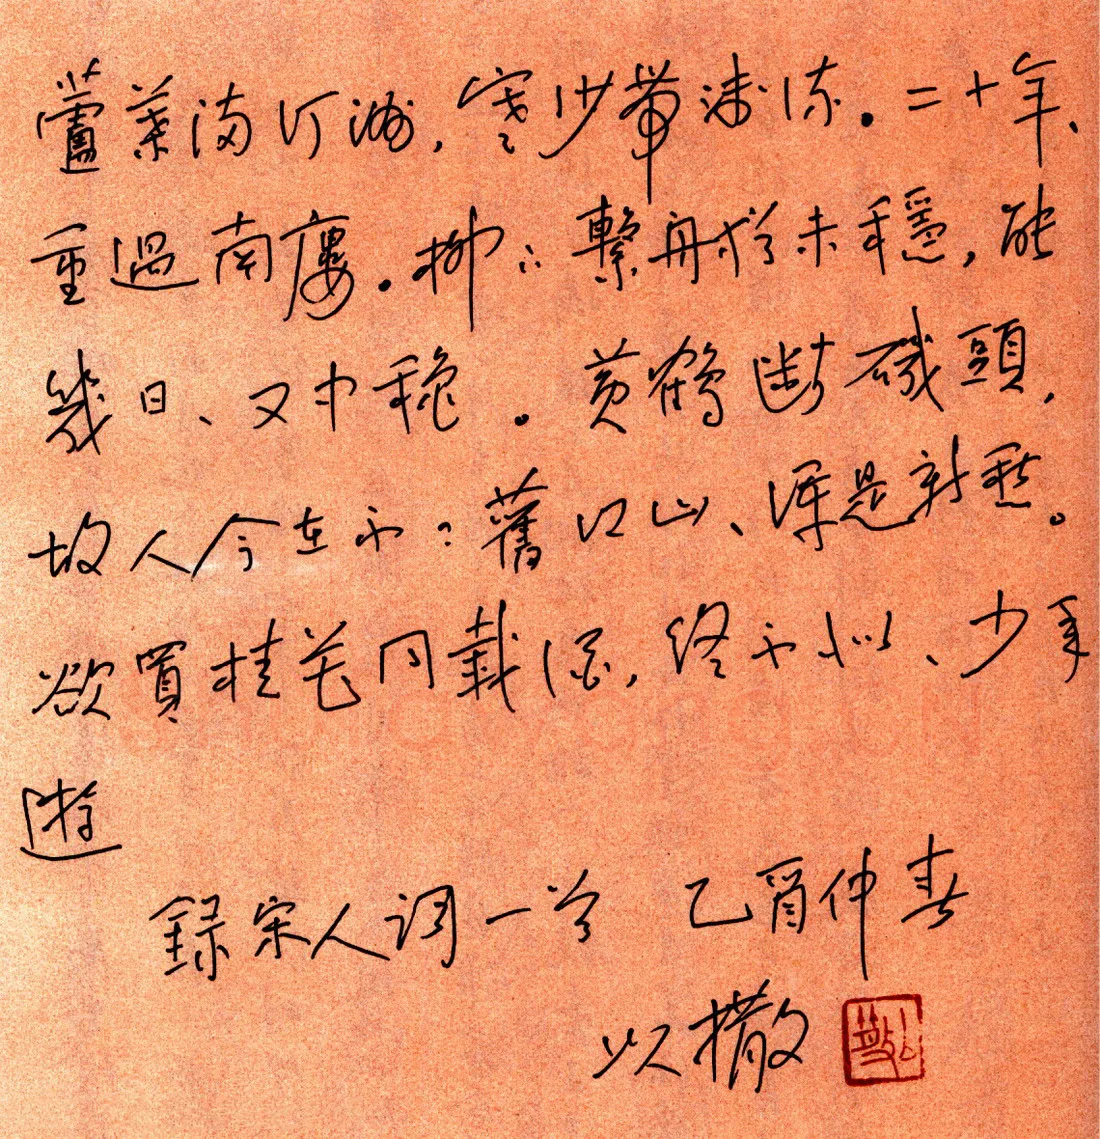 蘆葉滿汀洲,寒沙帶淺流。二十年、
重過南樓。柳下繫舟猶未穩,能
幾日、又中秋。黃鶴斷磯頭,
故人今在不?舊江山、渾是新愁。
欲買桂花同載酒,終不似、少年
遊
錄宋人词一首 乙酉仲春
以撒